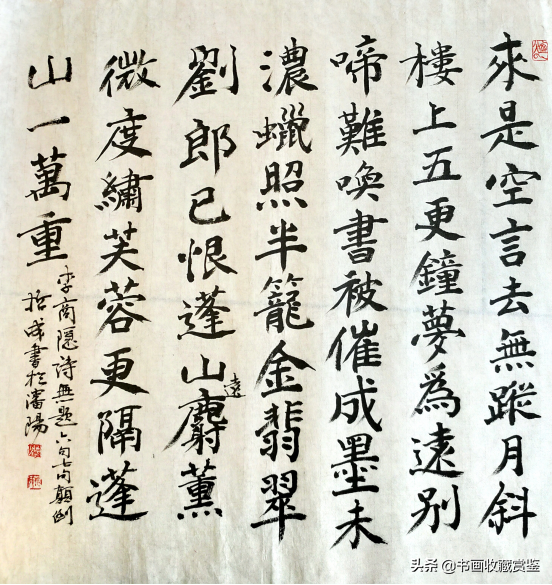 來是空言去無蹤月斜
樓上五更鐘夢爲遠別
啼難喚書被催成墨未
濃蠟照半籠金翡翠
劉郎已恨蓬山遠麝薰
微度繡芙蓉更隔蓬
山一萬重
李商隱詩無題六句七句顛倒
成書於瀋陽
头条 @书画收藏赏鉴